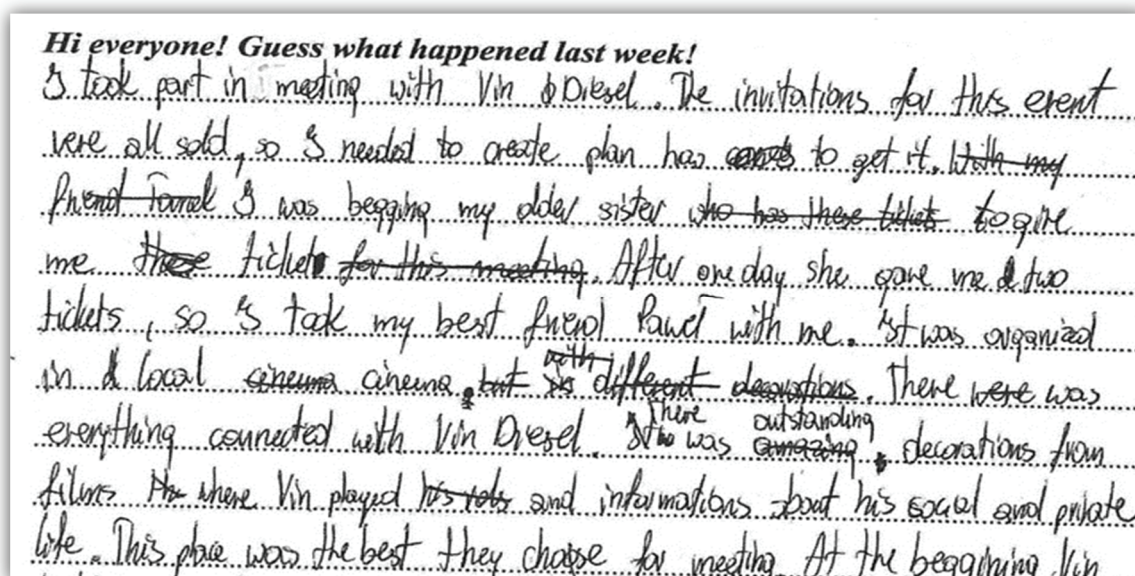 Hi everyone! Guess what happened last week!
I took part in meeting with Vin Diesel. The invitations for this event
vere all sold, so I needed to create plan has to get it. With my
friend I was begging my older sister who has these tickets to give
me these ticket for this meeting. After one day she gave me two
tickets, so I took my best friend Paweł with me. It was organized
in local cinema cinema. but with different decorations. There were was
everything connected with Vin Diesel. There was outstanding amazing decorations from
films where Vin played his role and informations about his social and private
life. This place was the best they choose for meeting. At the beggining Vin